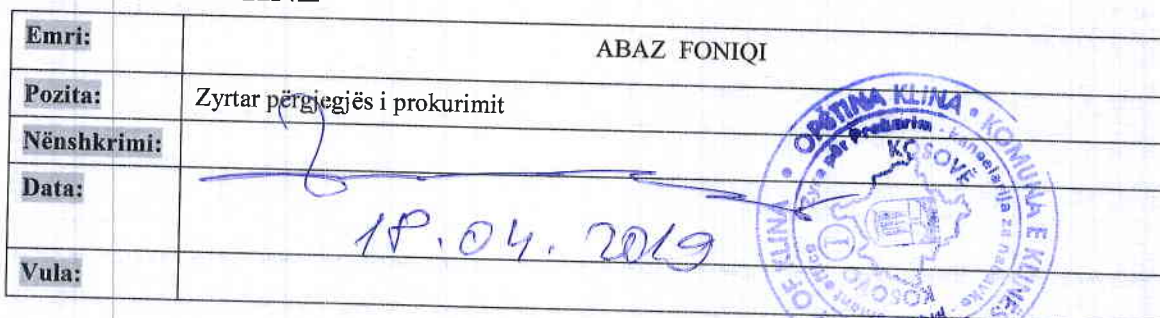 Emri: ABAZ FONIQI
Pozita: Zyrtar përgjegjës i prokurimit
Nënshkrimi:
Data: 18.04.2019
Vula:
OPŠTINA KLINA • KOMUNA E KLINËS
OF KLINA
Zyra për Prokurim - Kancelarija za nabavke
KOSOVË
KOSOVO
1